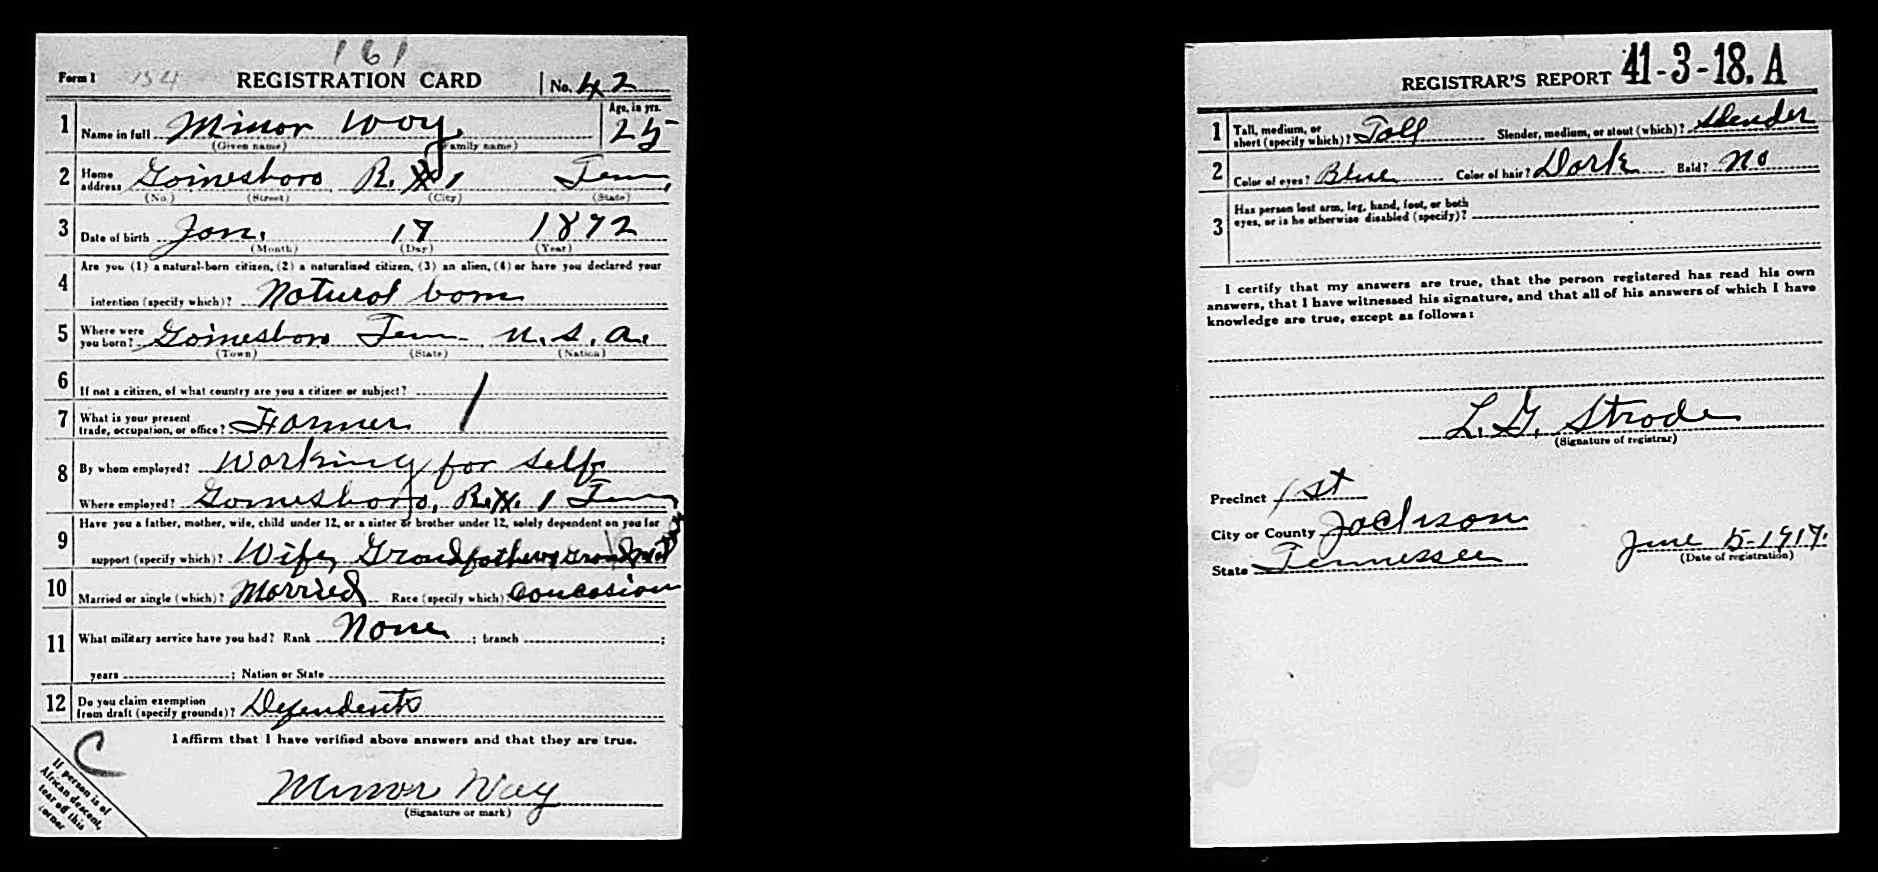 161
Form 1 154 REGISTRATION CARD No. 42
1 Name in full Minor Way Age, in yrs. 25
(Given name) (Family name)
2 Home address Gainesboro R. #1 Tenn.
(No.) (Street) (City) (State)
3 Date of birth Jan. 17 1892
(Month) (Day) (Year)
4 Are you (1) a natural-born citizen, (2) a naturalized citizen, (3) an alien, (4) or have you declared your
intention (specify which)? Natural born
5 Where were you born? Gainesboro Tenn U.S.A.
(Town) (State) (Nation)
6 If not a citizen, of what country are you a citizen or subject?
7 What is your present trade, occupation, or office? Farmer
8 By whom employed? Working for self
Where employed? Gainesboro, R. #. 1 Tenn
9 Have you a father, mother, wife, child under 12, or a sister or brother under 12, solely dependent on you for
support (specify which)? Wife, Grandfather,
10 Married or single (which)? Married Race (specify which)? Caucasian
11 What military service have you had? Rank None ; branch ;
years ; Nation or State
12 Do you claim exemption from draft (specify grounds)? Dependents
I affirm that I have verified above answers and that they are true.
C
Minor Way
(Signature or mark)
If person is of
African descent,
tear off this
corner
REGISTRAR'S REPORT 41-3-18. A
1 Tall, medium, or short (specify which)? Tall Slender, medium, or stout (which)? Slender
2 Color of eyes? Blue Color of hair? Dark Bald? No
3 Has person lost arm, leg, hand, foot, or both
eyes, or is he otherwise disabled (specify)?
I certify that my answers are true, that the person registered has read his own
answers, that I have witnessed his signature, and that all of his answers of which I have
knowledge are true, except as follows:
L. G. Strode
(Signature of registrar)
Precinct 1st
City or County Jackson
State Tennessee June 5-1917.
(Date of registration)